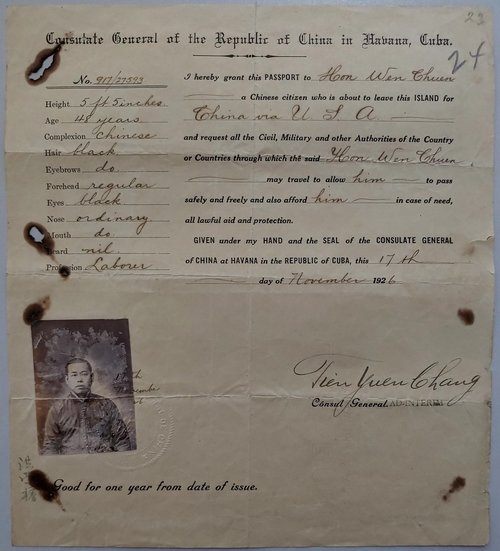 23
24
Consulate General of the Republic of China in Havana, Cuba.
No. 917/27593
Height 5 ft 5 inches
Age 48 years
Complexion Chinese
Hair black
Eyebrows do
Forehead regular
Eyes black
Nose ordinary
Mouth do
Beard nil
Profession Laborer
I hereby grant this PASSPORT to Hon Wen Chuen
a Chinese citizen who is about to leave this ISLAND for
China via U S A
and request all the Civil, Military and other Authorities of the Country
or Countries through which the said Hon Wen Chuen
may travel to allow him to pass
safely and freely and also afford him in case of need,
all lawful aid and protection.
GIVEN under my HAND and the SEAL of the CONSULATE GENERAL
of CHINA at HAVANA in the REPUBLIC of CUBA, this 17th
day of November 1926
Tien Yuen Chang
Consul General. AD-INTERIM
Good for one year from date of issue.